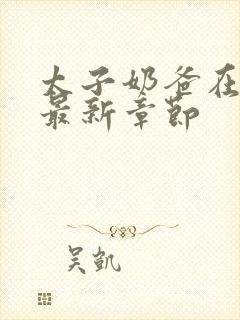 太子奶爸在
最新章节
吴凯